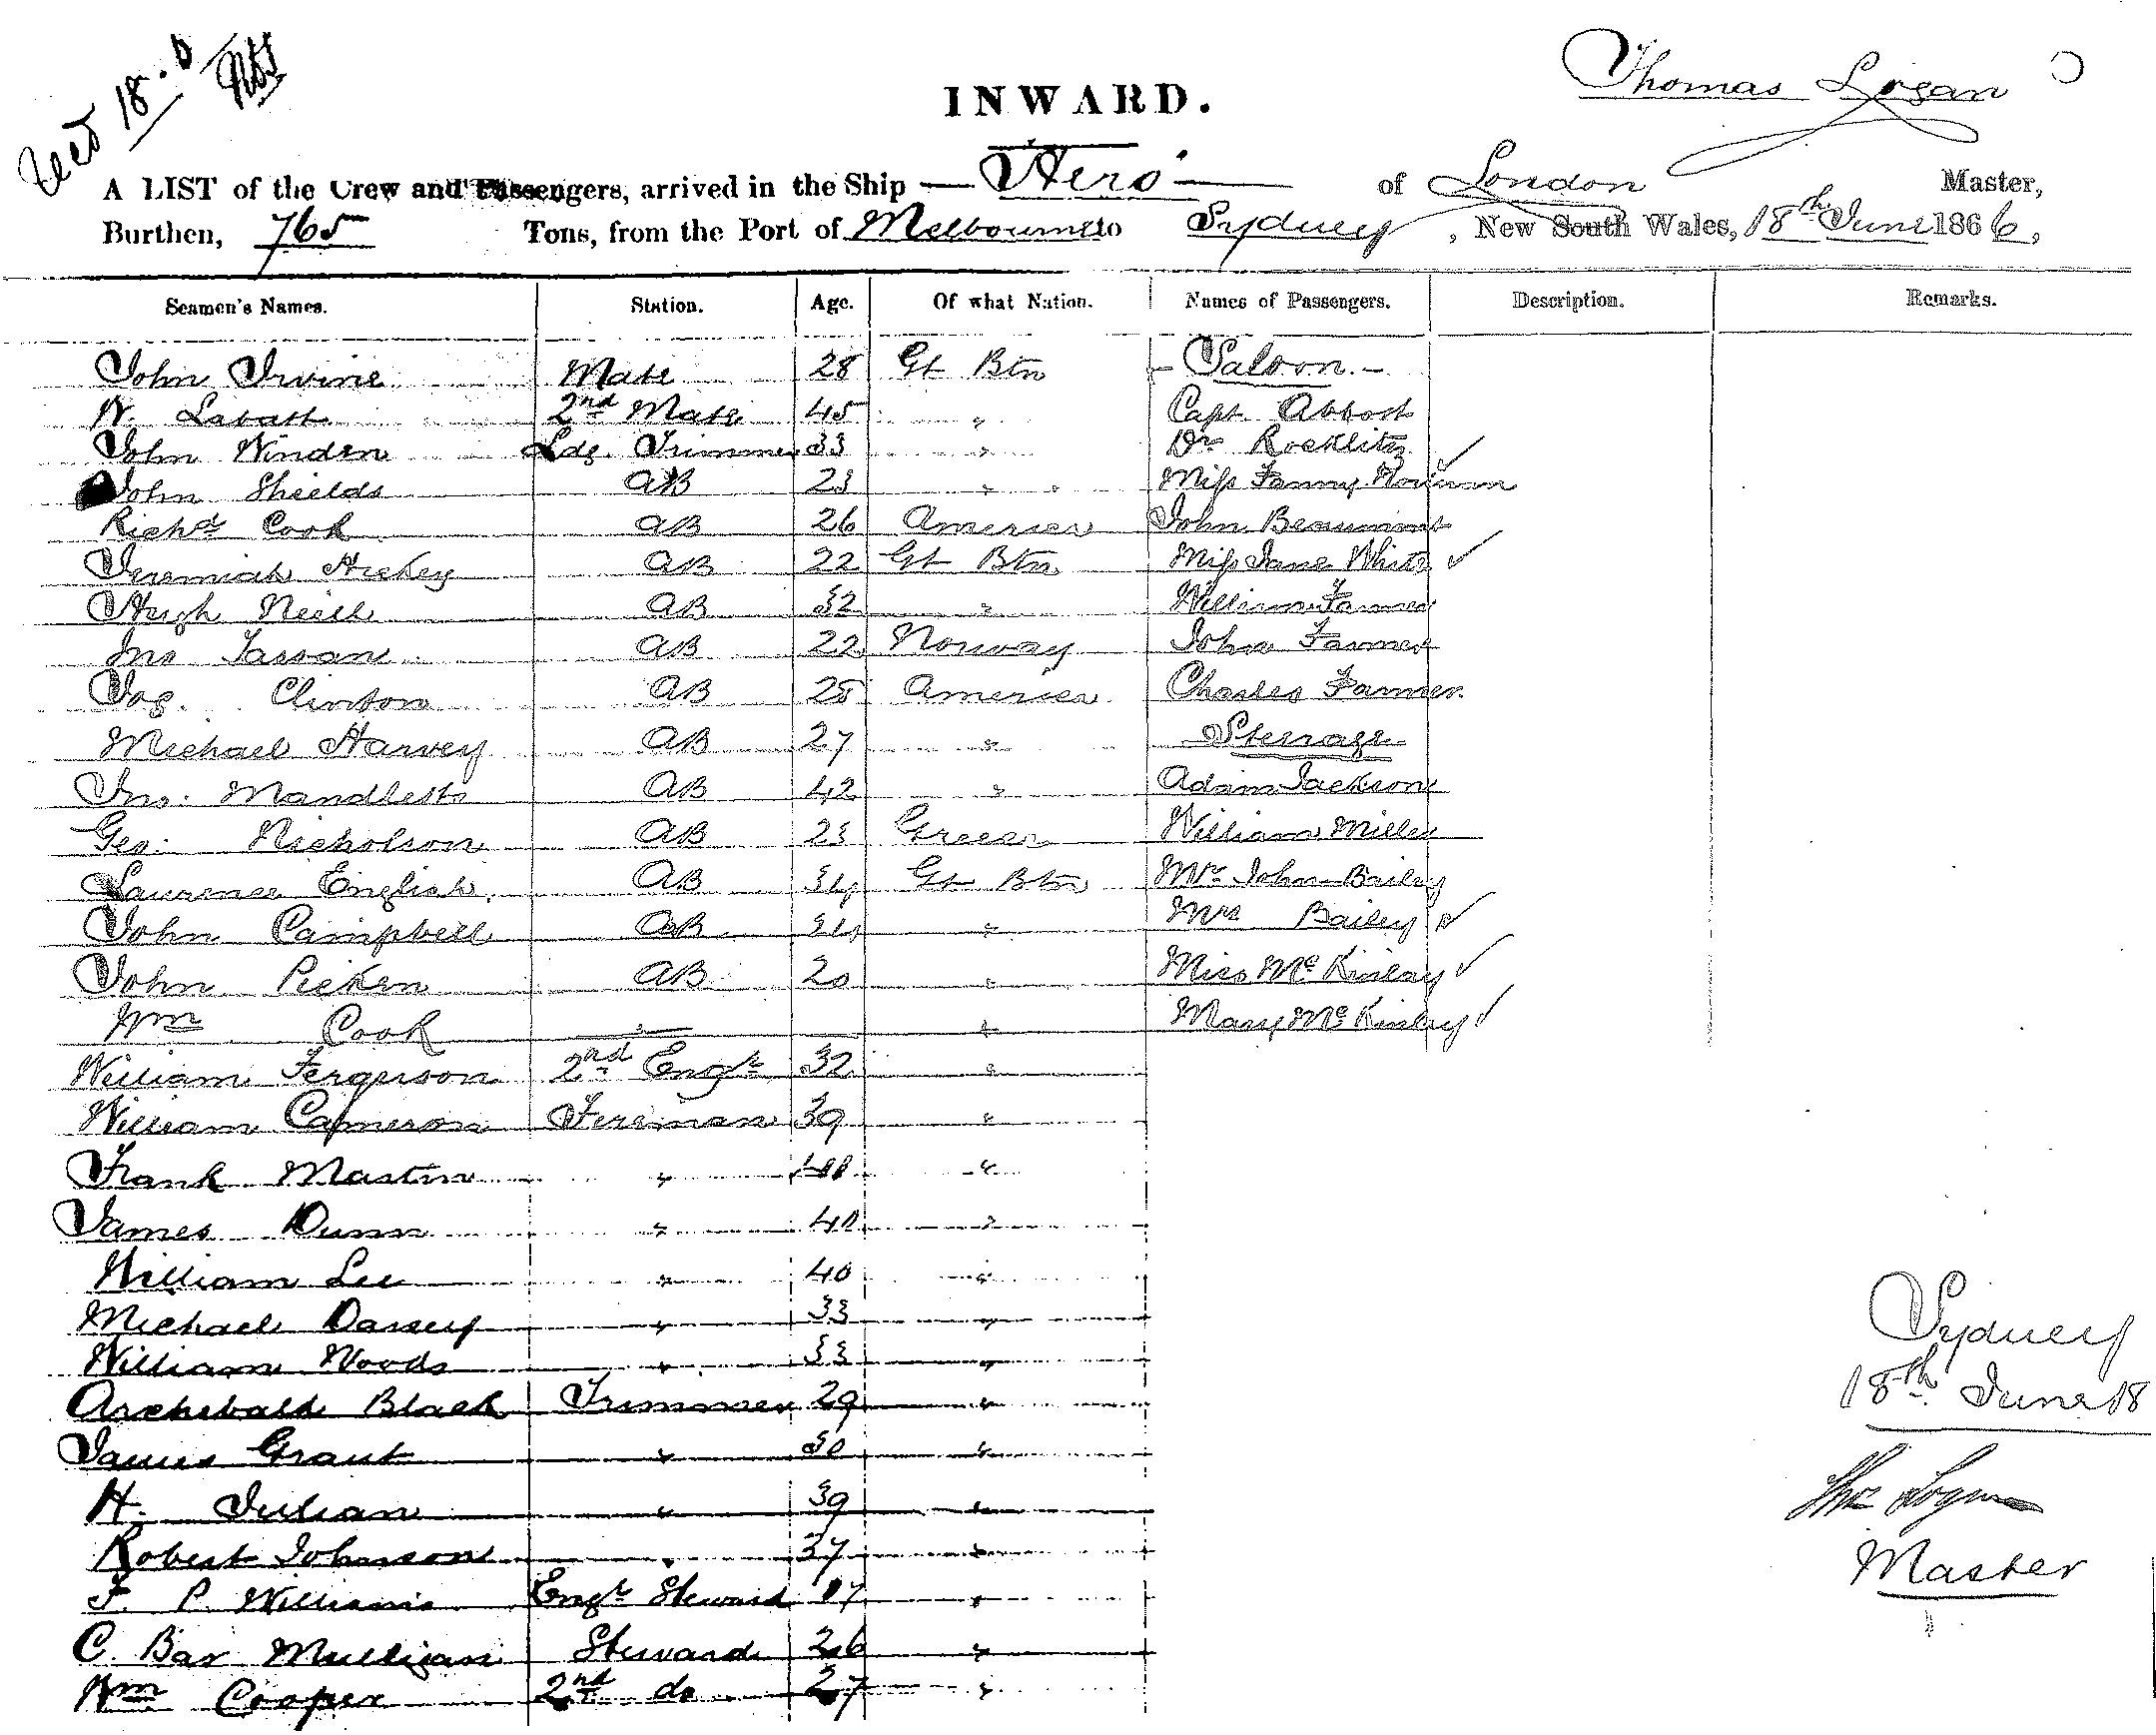 Recd 18.6
INWARD.
Thomas Logan
A LIST of the Crew and Passengers, arrived in the Ship Hero of London Master,
Burthen, 765 Tons, from the Port of Melbourne to Sydney, New South Wales, 18th June 1866,
Seamen's Names. Station. Age. Of what Nation. Names of Passengers. Description. Remarks.
John Irvine Mate 28 Gt Btn - Saloon. -
W. Labatt 2nd Mate 45 " Capt. Abbott
John Winden Ldg. Trimmer 33 " Dr Rocklitz ✓
John Shields AB 23 " " Miss Fanny
Richd Cook AB 26 America John Beaumont
Jeremiah Hickey AB 22 Gt Btn Miss Jane White ✓
Hugh Neill AB 32 " William Farmer
Jno Tassan AB 22 Norway John Farmer
Jas. Clinton AB 25 America Charles Farmer.
Michael Harvey AB 27 " Steerage
Jno. AB 42 " Adam Jackson
Geo. Nicholson AB 23 Greece William Miller
Laurence English. AB 34 Gt Btn Mr John Bailey
John Campbell AB 34 " Mrs Bailey ✓
John Picken AB 20 " Miss McKinlay ✓
Wm Cook " " Mary McKinlay ✓
William Ferguson 2nd Engr 32 "
William Cameron Fireman 39 "
Frank Martin " "
James Dunn " 40 "
William Lee " 40 "
Michael Darsey " 33 "
William Woods " 33 "
Archibald Black Trimmer 29 "
James Grant " 30 "
H. Julian " 39 "
Robert Johnson " 37 "
F. P. Williams Engr Steward 17 "
C. Bar Mulligan Steward 26 "
Wm Cooper 2nd do 27 "
Sydney
18th June 18
Thos Logan
Master